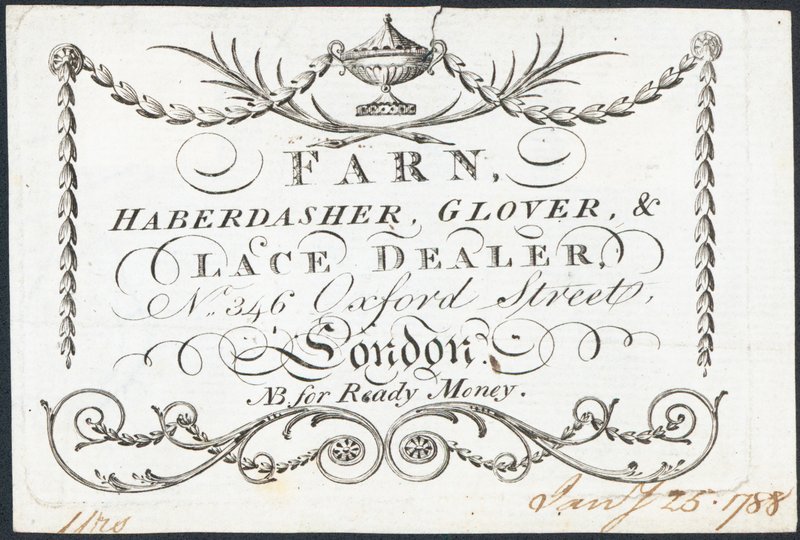 FARN,
HABERDASHER, GLOVER, &
LACE DEALER,
No. 346 Oxford Street,
London.
NB. for Ready Money.
Jany 25. 1788
Mrs